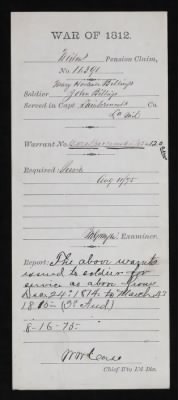 WAR OF 1812.
Widow Pension Claim,
No. 16391
Mary Horance Billings
Soldier John Billings
Served in Capt. Co.
La Mil
Warrant No.
Required: Search
Aug 11/75
Examiner.
Report: The above warrant
issued to soldier for
service as above from
Dec 24th 1814 to March
1815 (3d Aud)
8-16-75-
Chief B'ty Ld Div.